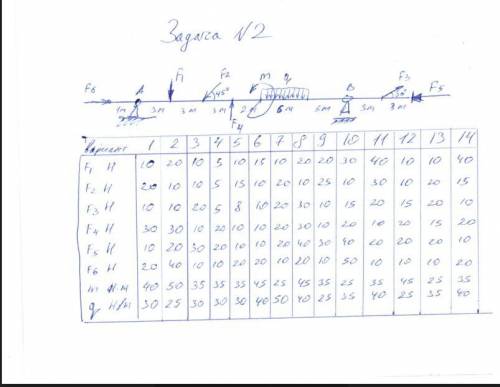 Задача N2
F6 A F1 F2 45° M q B F3 F5
1m 3m 3m F4 2m 6m 6m 3m 3m
Вариант 1 2 3 4 5 6 7 8 9 10 11 12 13 14
F1 Н 10 20 10 5 10 15 10 20 20 30 40 10 10 40
F2 Н 20 10 10 5 15 10 20 10 25 10 30 10 20 15
F3 Н 10 10 20 5 8 10 20 30 10 15 20 15 20 10
F4 Н 30 30 10 20 10 10 20 30 10 20 10 20 15 20
F5 Н 10 20 30 20 10 10 20 40 30 40 20 20 20 10
F6 Н 20 40 10 10 20 20 10 20 10 50 10 10 10 20
m Н·м 40 50 35 35 35 45 25 45 35 25 35 45 25 35
q Н/м 30 25 30 30 30 40 50 40 25 35 40 25 35 40